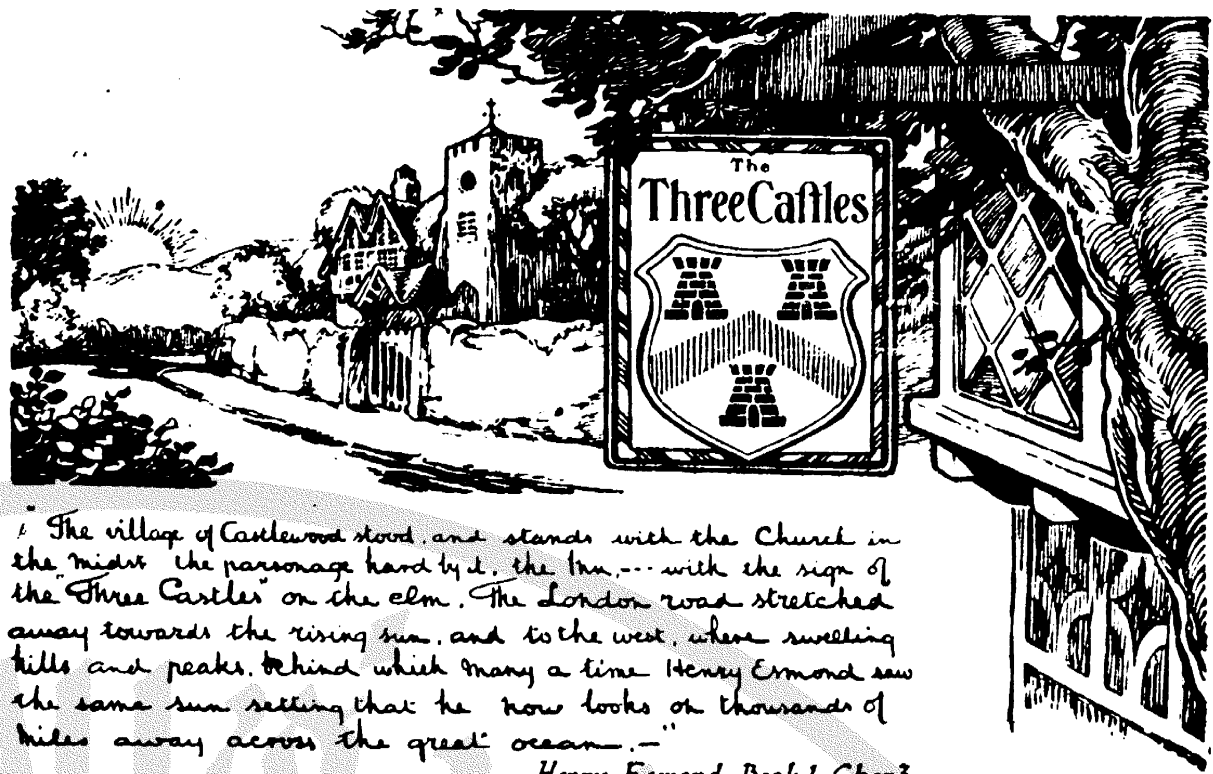 The
Three Castles
" The village of Castlewood stood, and stands with the Church in
the midst the parsonage hard by it, the Inn, --- with the sign of
the "Three Castles" on the elm. The London road stretched
away towards the rising sun, and to the west, where swelling
hills and peaks, behind which many a time Henry Esmond saw
the same sun setting that he now looks on thousands of
miles away across the great ocean.—"
Henry Esmond Book 1 Chap 3